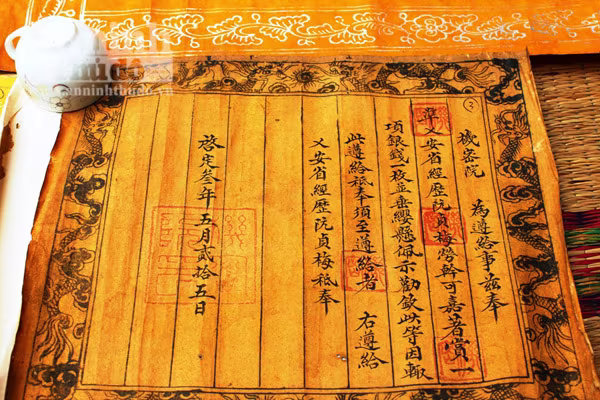 ③
機密院 為遵給事茲奉
乂安省經歷阮貞梅勞幹可嘉著賞一
項銀錢一枚並垂纓懸佩示勸欽此等因輙
此遵給祗奉須至遵給者 右遵給
乂安省經歷阮貞梅祗奉
啓定叄年五月貳拾五日